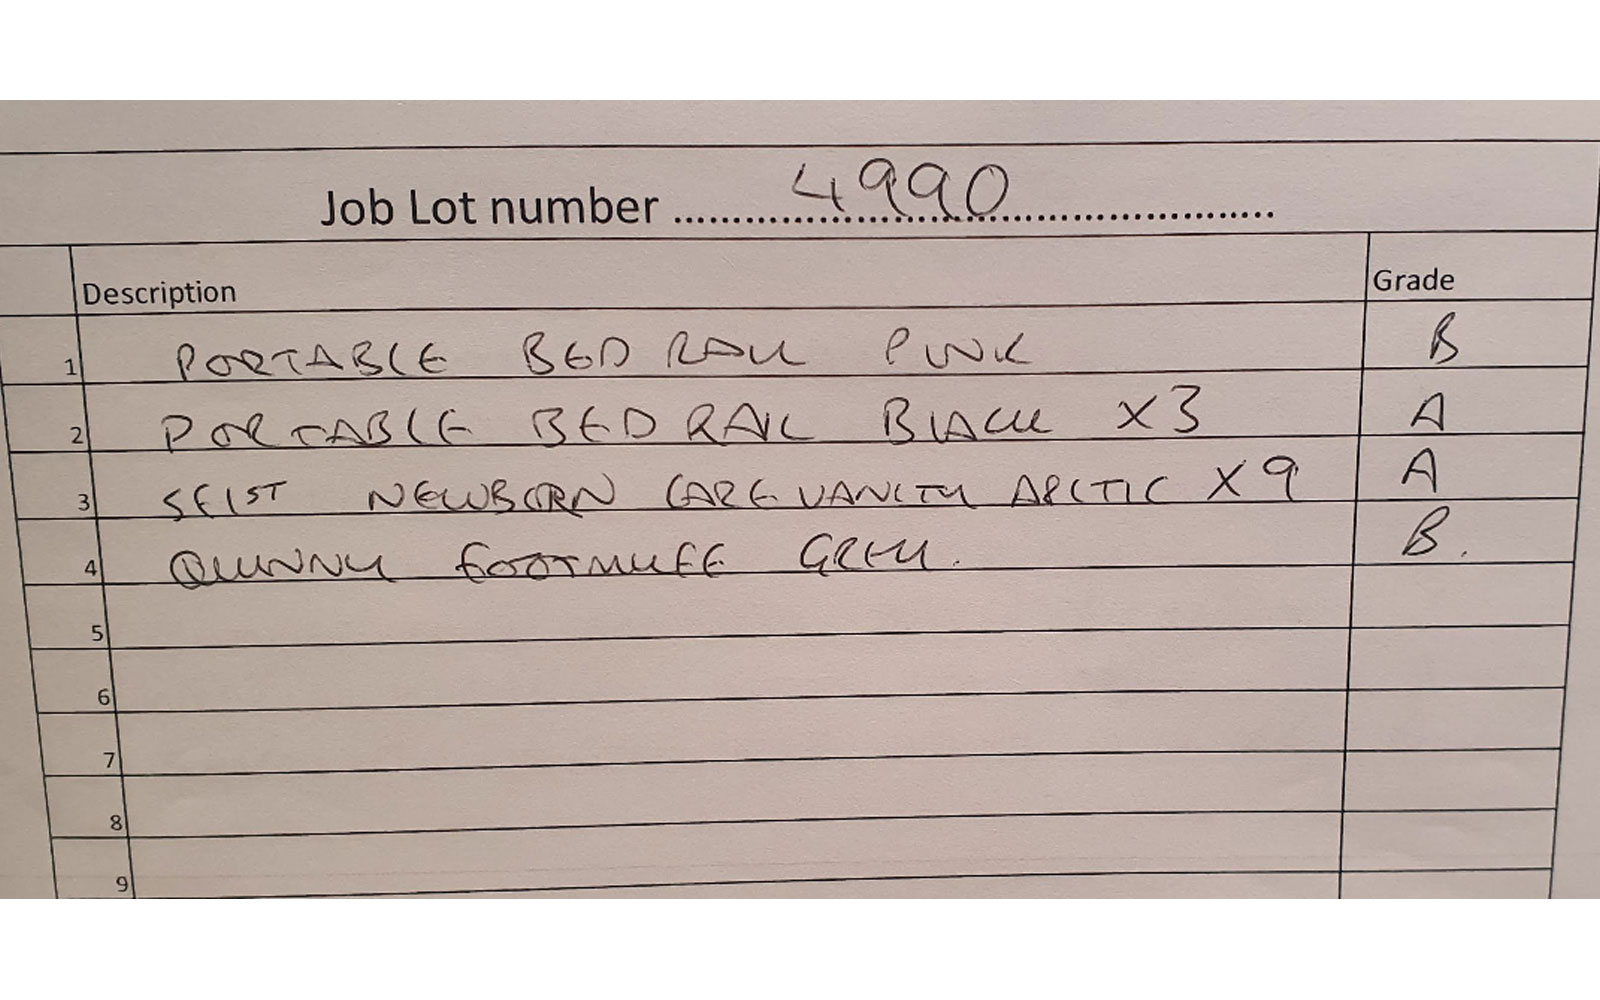 Job Lot number ........4990........
Description Grade
1 PORTABLE BED RAIL PINK B
2 PORTABLE BED RAIL BLACK X3 A
3 NEWBORN CARE VANITY ARCTIC X9 A
4 QUINNY FOOTMUFF GREY. B.
5
6
7
8
9